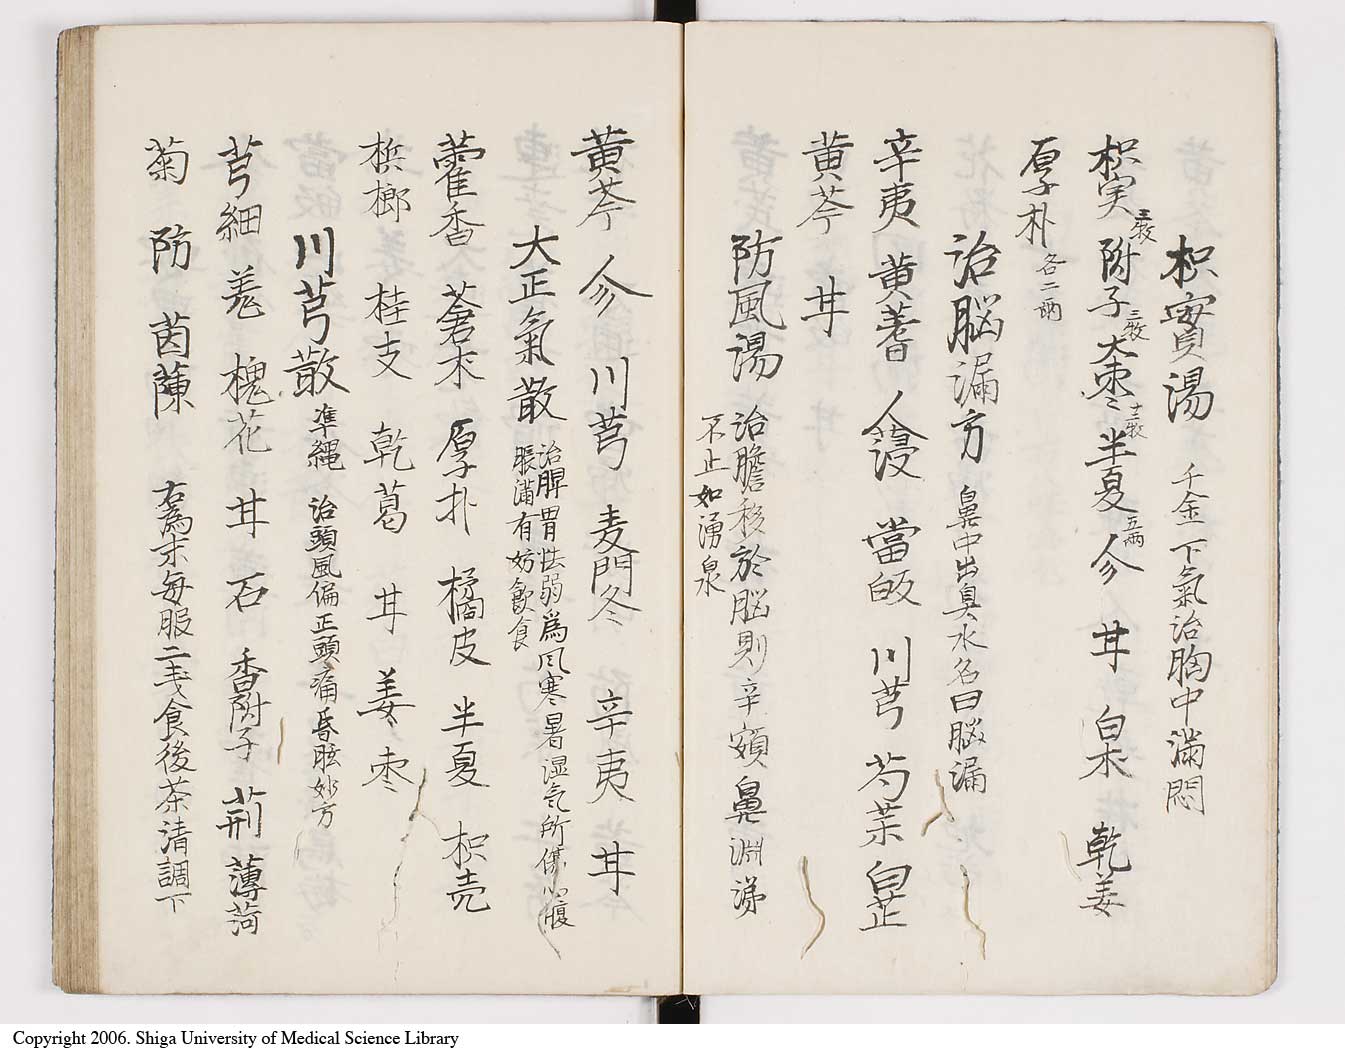 枳實湯 千金 下氣治胸中滿悶
枳実三枚 附子三枚 大棗十二枚 半夏五両 㕥 甘 白朮 乾姜
厚朴各二両
治脳漏方 鼻中出臭水名曰脳漏
辛夷 黄蓍 人薓 當皈 川芎 芍薬 白芷
黄芩 甘
防風湯 治膽移於脳則辛頞鼻淵涕
不止如湧泉
黄芩 㕥 川芎 麦門冬 辛夷 甘
大正氣散 治脾胃怯弱為风寒暑湿气所傷心腹
脹滿有妨飲食
藿香 蒼朮 厚朴 橘皮 半夏 枳壳
梹榔 桂支 乾葛 甘 姜 棗
川芎散 凖縄 治頭風偏正頭痛昏眩妙方
芎 細 羌 槐花 甘 石 香附子 荊 薄荷
菊 防 茵蔯 右為末毎服二戔食後茶清調下
Copyright 2006. Shiga University of Medical Science Library